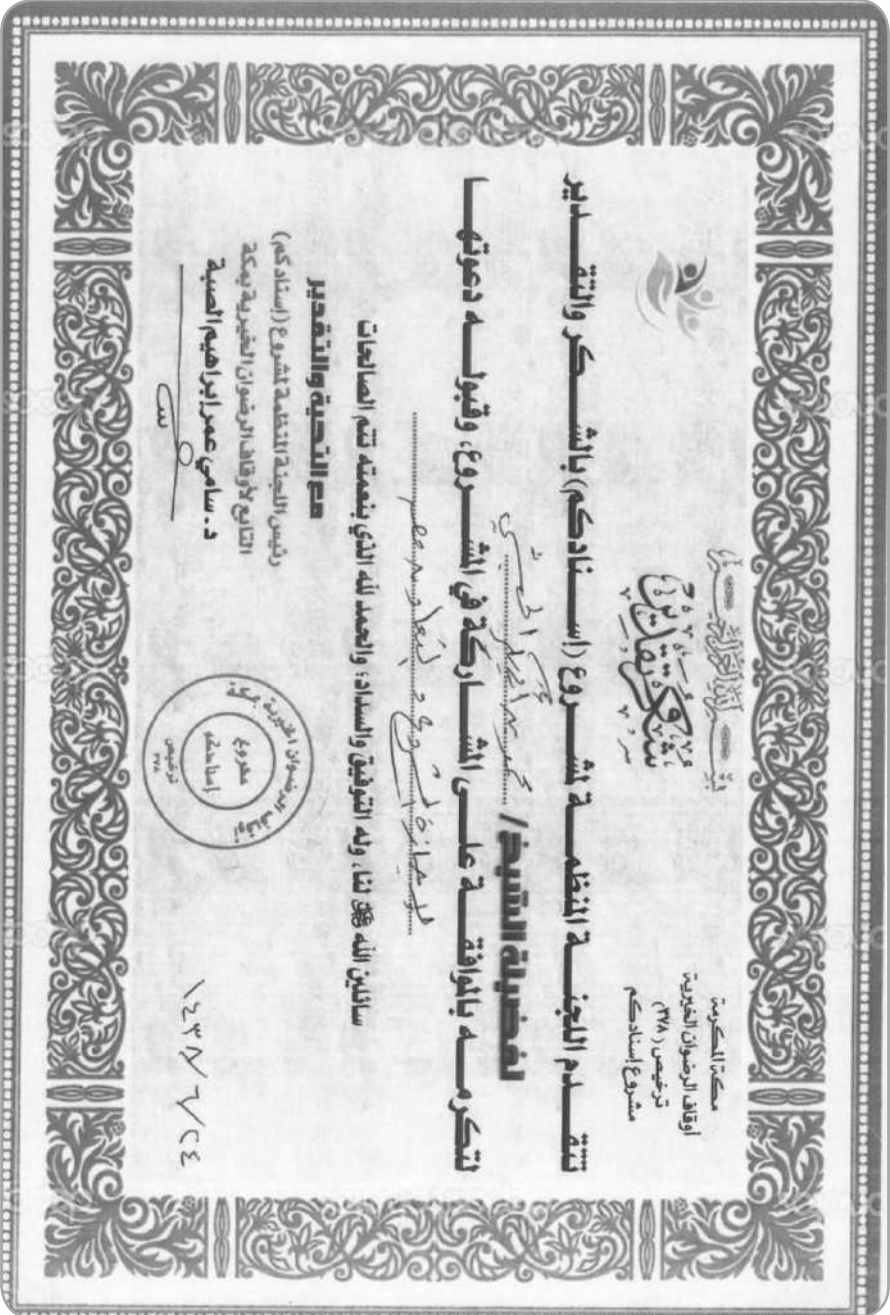 بسم الله الرحمن الرحيم
مكة المكرمة
أوقاف الرضوان الخيرية
ترخيص (٣٧٨)
مشروع إسنادكم
شكر وتقدير
تتقدم اللجنة المنظمة لمشروع (إسنادكم) بالشكر والتقدير
لفضيلة الشيخ /
لتكرمه بالموافقة على المشاركة في المشروع، وقبوله دعوتها
سائلين الله ﷻ لنا، وله التوفيق والسداد، والحمد لله الذي بنعمته تتم الصالحات
مع التحية والتقدير
رئيس اللجنة المنظمة لمشروع (إسنادكم)
التابع لأوقاف الرضوان الخيرية بمكة
د. سامي عمر إبراهيم الصبة
مشروع
إسنادكم
ترخيص
٣٧٨
١٤٣٨/٦/٢٤